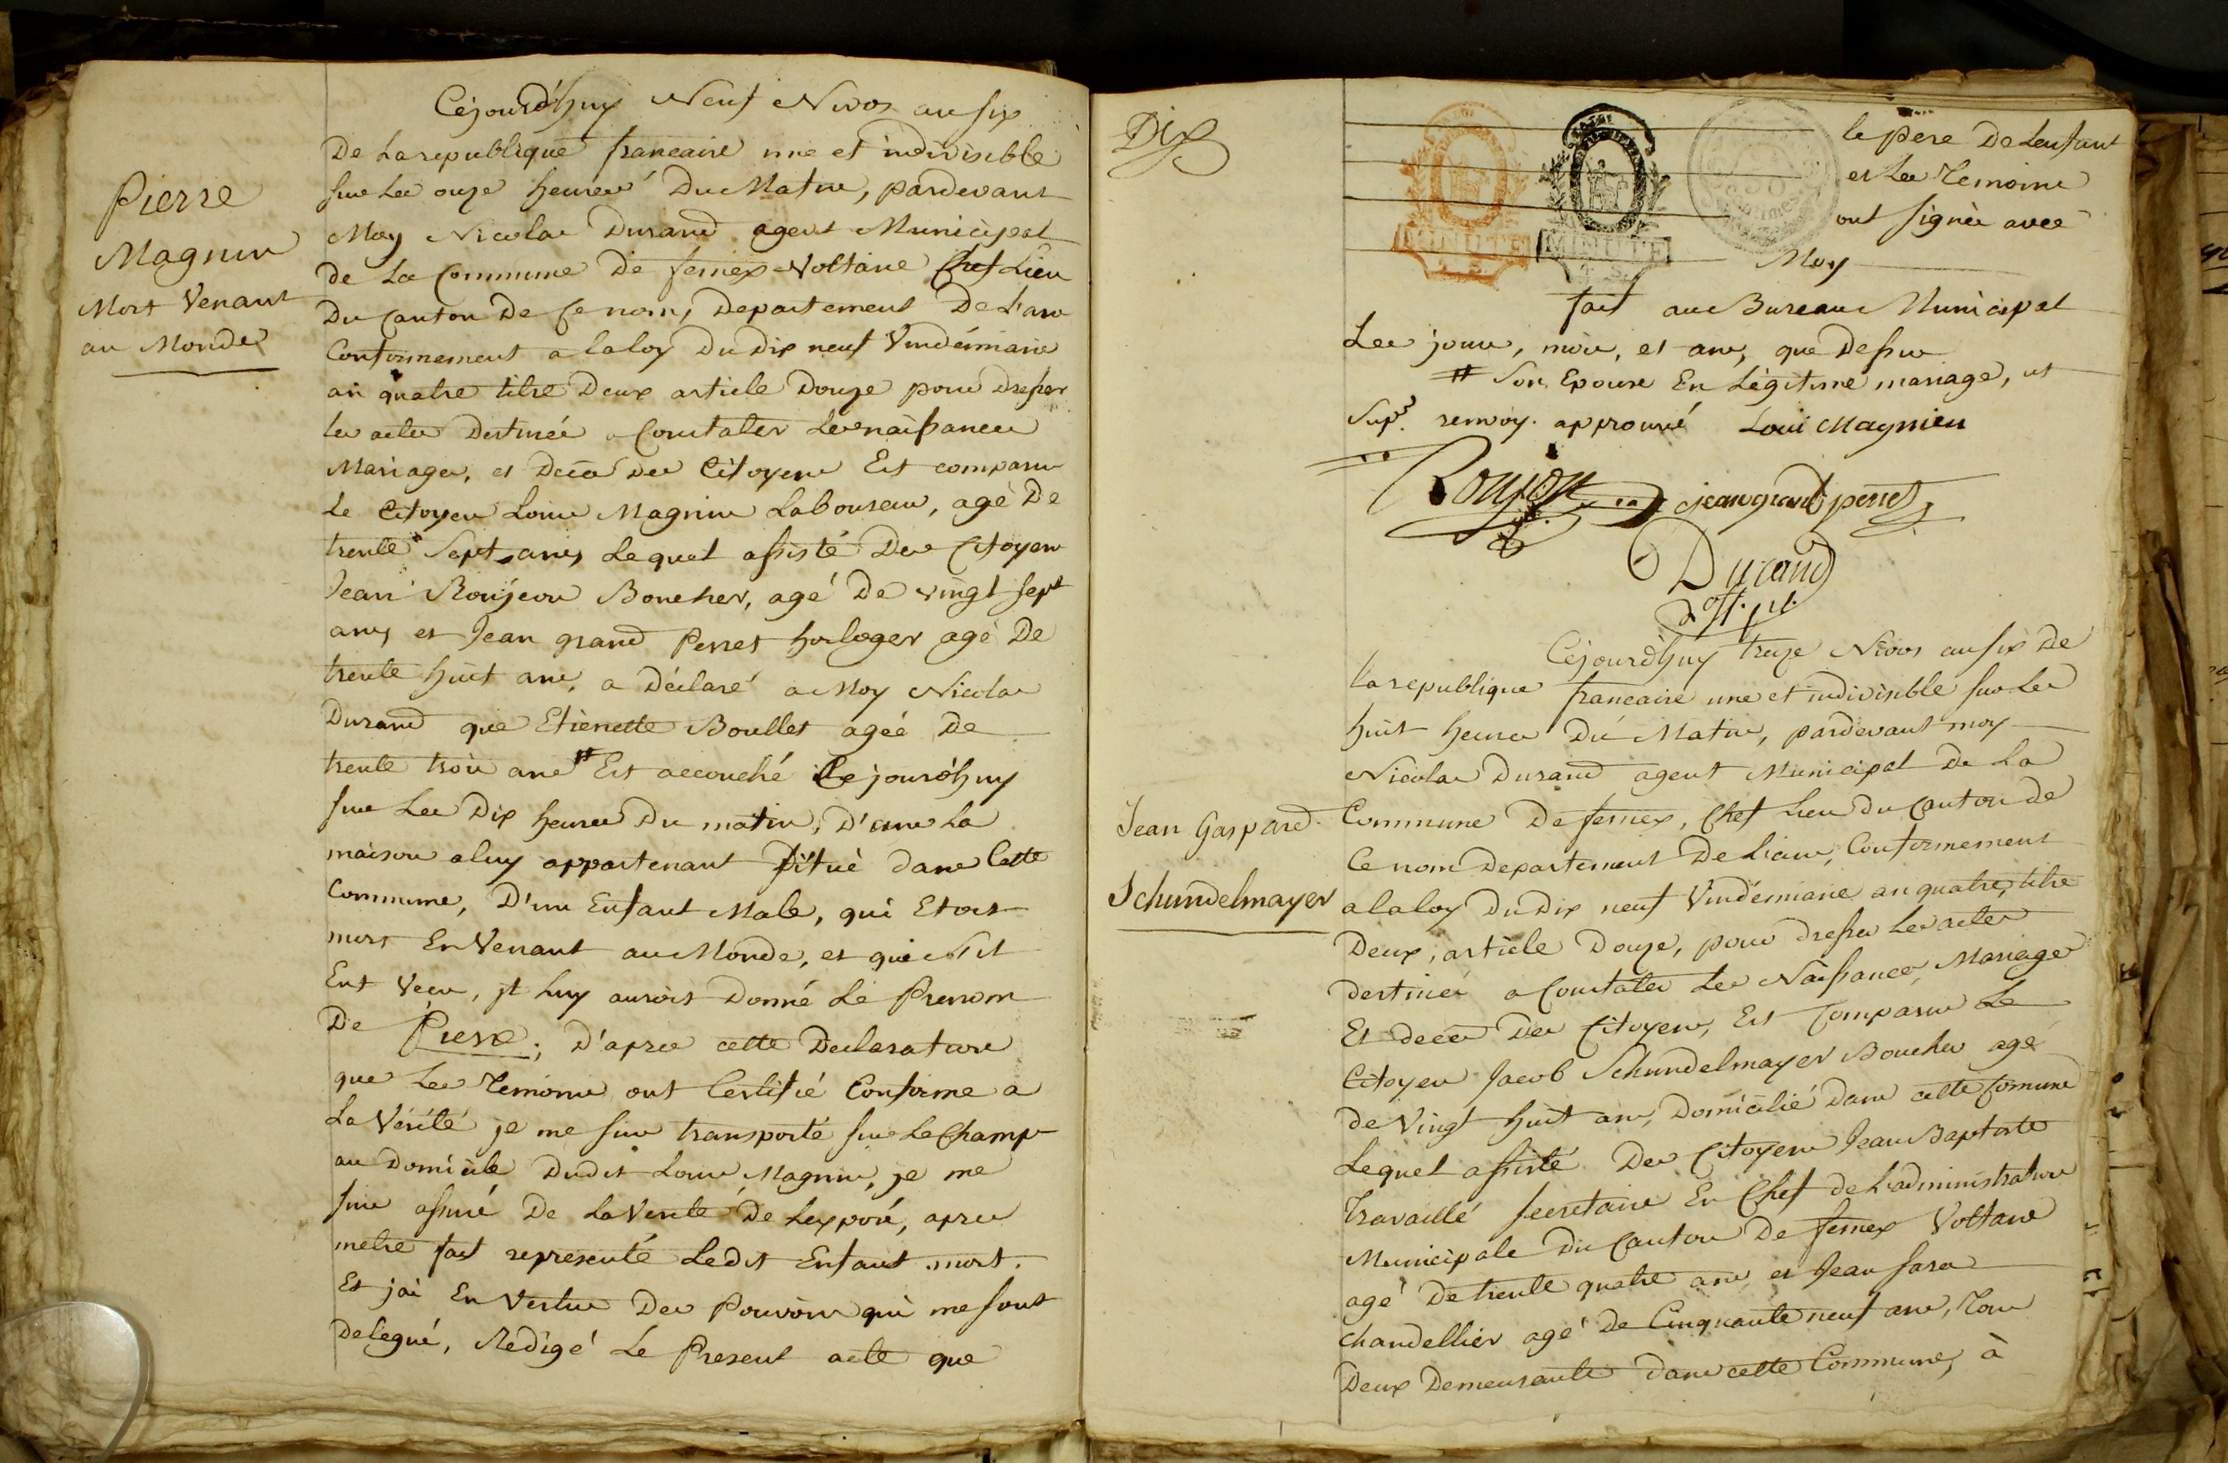 Pierre
Magnin
Mort Venant
au Monde
Cejourd'huy Neuf Nivos an six
De La republique francaise une et indivisible
sur Les onze heures Du Matin, pardevant
Moy Nicolas Durand agent Municipal
de La Commune De fernex Voltaire Chef Lieu
Du Canton De Ce nom, Departement De L'ain
Conformement a la loy Du Dix neuf Vindémiaire
an quatre titre Deux article Douze pour Dresser
les actes Destinés a Constater Les naissances
Mariages, et Decès Des Citoyens Est comparu
Le Citoyen Louis Magnin Laboureur, agé De
trente Sept ans, Lequel assisté Des Citoyens
Jean Roujeon Boucher, agé De vingt sept
ans, et Jean grand Perret horloger agé De
trente huit ans, a Déclaré a Moy Nicolas
Durand que Etienette Boullet agée De
trente trois ans # Est accouché Cejourd'huy
sur Les Dix heures Du matin, D'ans La
maison a luy appartenant Situé dans Cette
Commune, D'un Enfant Male, qui Etoit
mort En Venant au Monde, et que S'il
Eut Vecu, jl luy auroit Donné Le Prenom
De Pierre; D'apres cette Declaration
que Les Temoins ont Certifié Conforme a
La Vérité je me suis transporté sur Le Champ
au Domicile Dudit Louis Magnin, je me
suis assuré De La Verité De Lexposé, apres
metre fait representé Ledit Enfant mort.
Et jai En Vertus Des Pouvoirs qui me sont
Delegué, Redigé Le Present acte que
Dix
le pere De Lenfant
et Les Temoins
ont signés avec
Moy
MINUTE
MINUTE
fait au Bureau Municipal
Les jours, mois, et ans, que Dessus
# Son Epouse En Légitime mariage, ut
Sup.ª renvoy approuvé Loui Magnien
Roujon jean grand perret
Durand
off. pu.
Jean Gaspard
Schundelmayer
Cejourd'huy treze Nivos an six De
la republique francaise une et indivisible sur Les
huit heures Du Matin, pardevant moy
Nicolas Durand agent Municipal De La
Commune De fernex, Chef Lieu Du Canton de
Ce nom Departement De Lain, Conformement
a la loy Du Dix neuf Vindémiaire an quatre, titre
Deux, article Douze, pour dresser Les actes
Destinés a Constater Les Naissances, Mariages
Et decès Des Citoyens, Est Comparu Le
Citoyen Jacob Schundelmayer Boucher agé
De Vingt huit ans, Domicilié Dans cette Comune
Lequel assisté Des Citoyens Jean Baptiste
Travaillé secretaire En Chef de L'administration
Municipale Du Canton De fernex Voltaire
agé De trente quatre ans, et Jean
chandellier agé De Cinquante neuf ans, Tous
Deux Demeurants Dans cette Commune, à